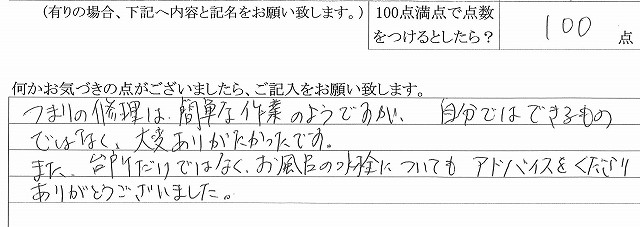 (有りの場合、下記へ内容と記名をお願い致します。)
100点満点で点数
をつけるとしたら？
100 点
何かお気づきの点がございましたら、ご記入をお願い致します。
つまりの修理は、簡単な作業のようですが、自分ではできるもの
ではなく、大変ありがたかったです。
また、台所だけではなく、お風呂の水栓についてもアドバイスをくださり
ありがとうございました。